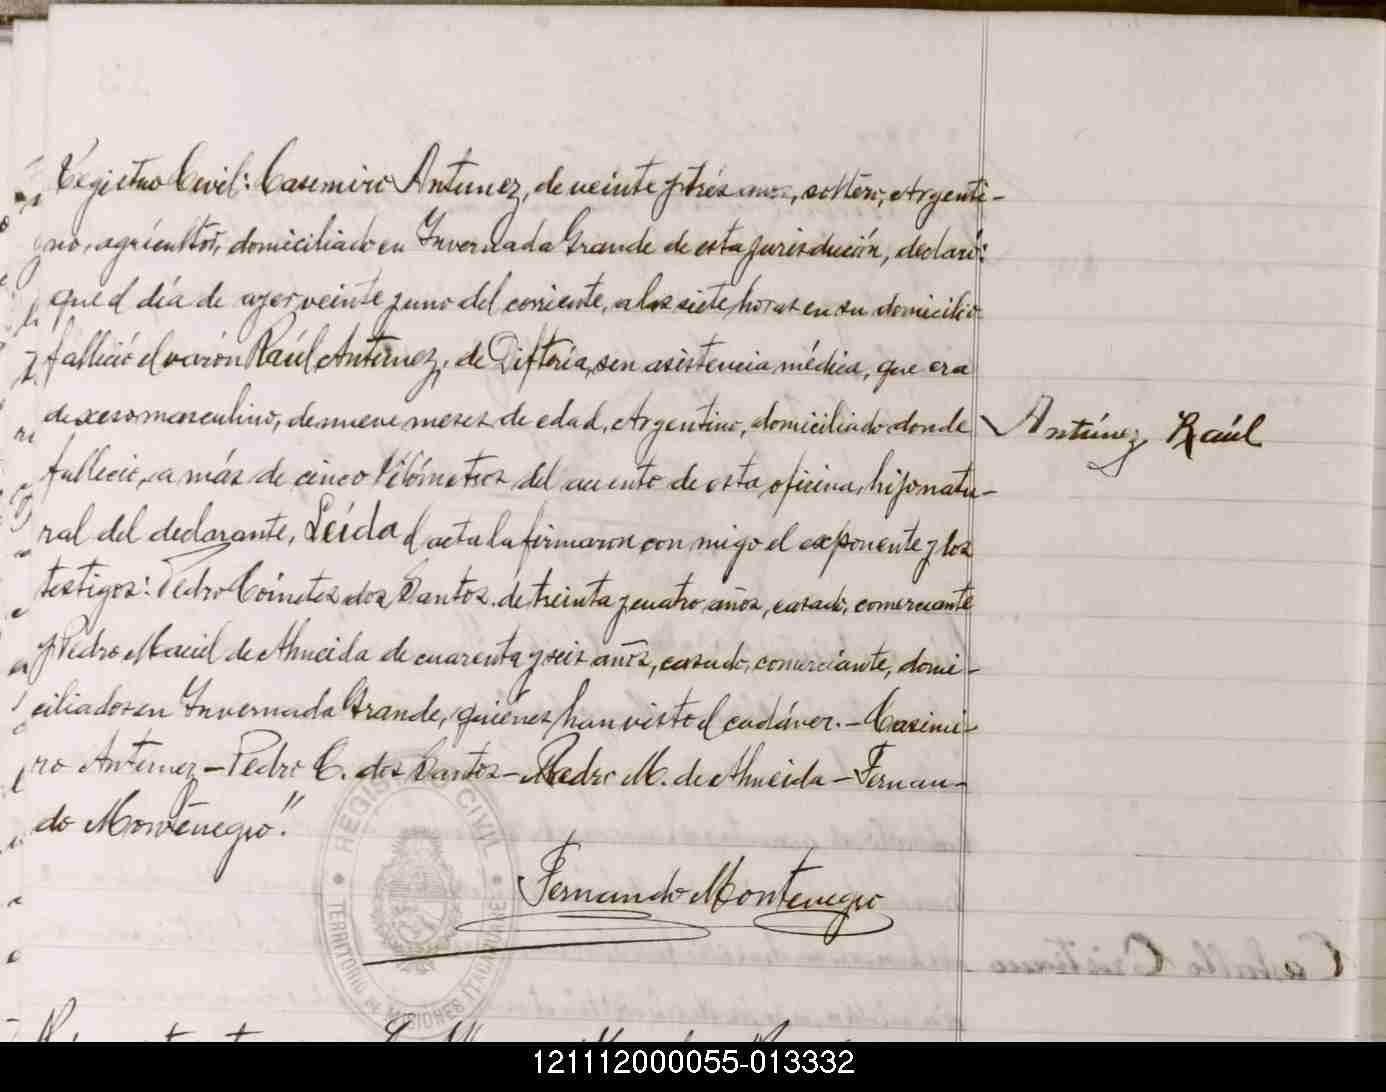 Registro Civil: Casemiro Antunez, de veinte y trés anos, soltero, Argenti-
no, agricultor, domiciliado en Invernada Grande de esta jurisdición, declaró:
que el día de ayer veinte y uno del corriente, a las siete horas en su domicilio
falleció el varón Raúl Antunez, de Difteria, sin asistencia médica, que era
de sexo masculino, de nueve meses de edad, Argentino, domiciliado donde
falleció, a más de cinco kilómetros del asiento de esta oficina, hijo natu-
ral del declarante, Leída el acta la firmaron con migo el exponente y los
testigos: Pedro dos Santos de treinta y cuatro, años, casado, comerciante
y Pedro Maciel de Almeida de cuarenta y seis años, casado, comerciante, domi-
ciliados en Invernada Grande, quiénes han visto el cadáver. - Casimi-
ro Antunez - Pedro C. dos Santos - Pedro M. de Almeida - Fernan-
do Montenegro".
Antúnez Raúl
Fernando Montenegro
REGISTRO CIVIL
TERRITORIO DE MISIONES ITACARUARE
121112000055-013332